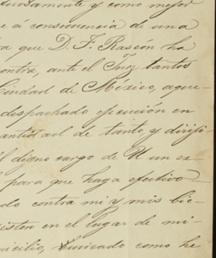 tuosamente y como mejor
e á consivencia de una
a que D. F. Rascón ha
contra, ante el Juez tantos
Ciudad de México, aque
despachado ejecución en
cantidad de tanto y dirigi
l digno cargo de U un ex
para que haga efectivo
do contra mí y mis bie
isten en el lugar de mi
micilio, ubicado como he